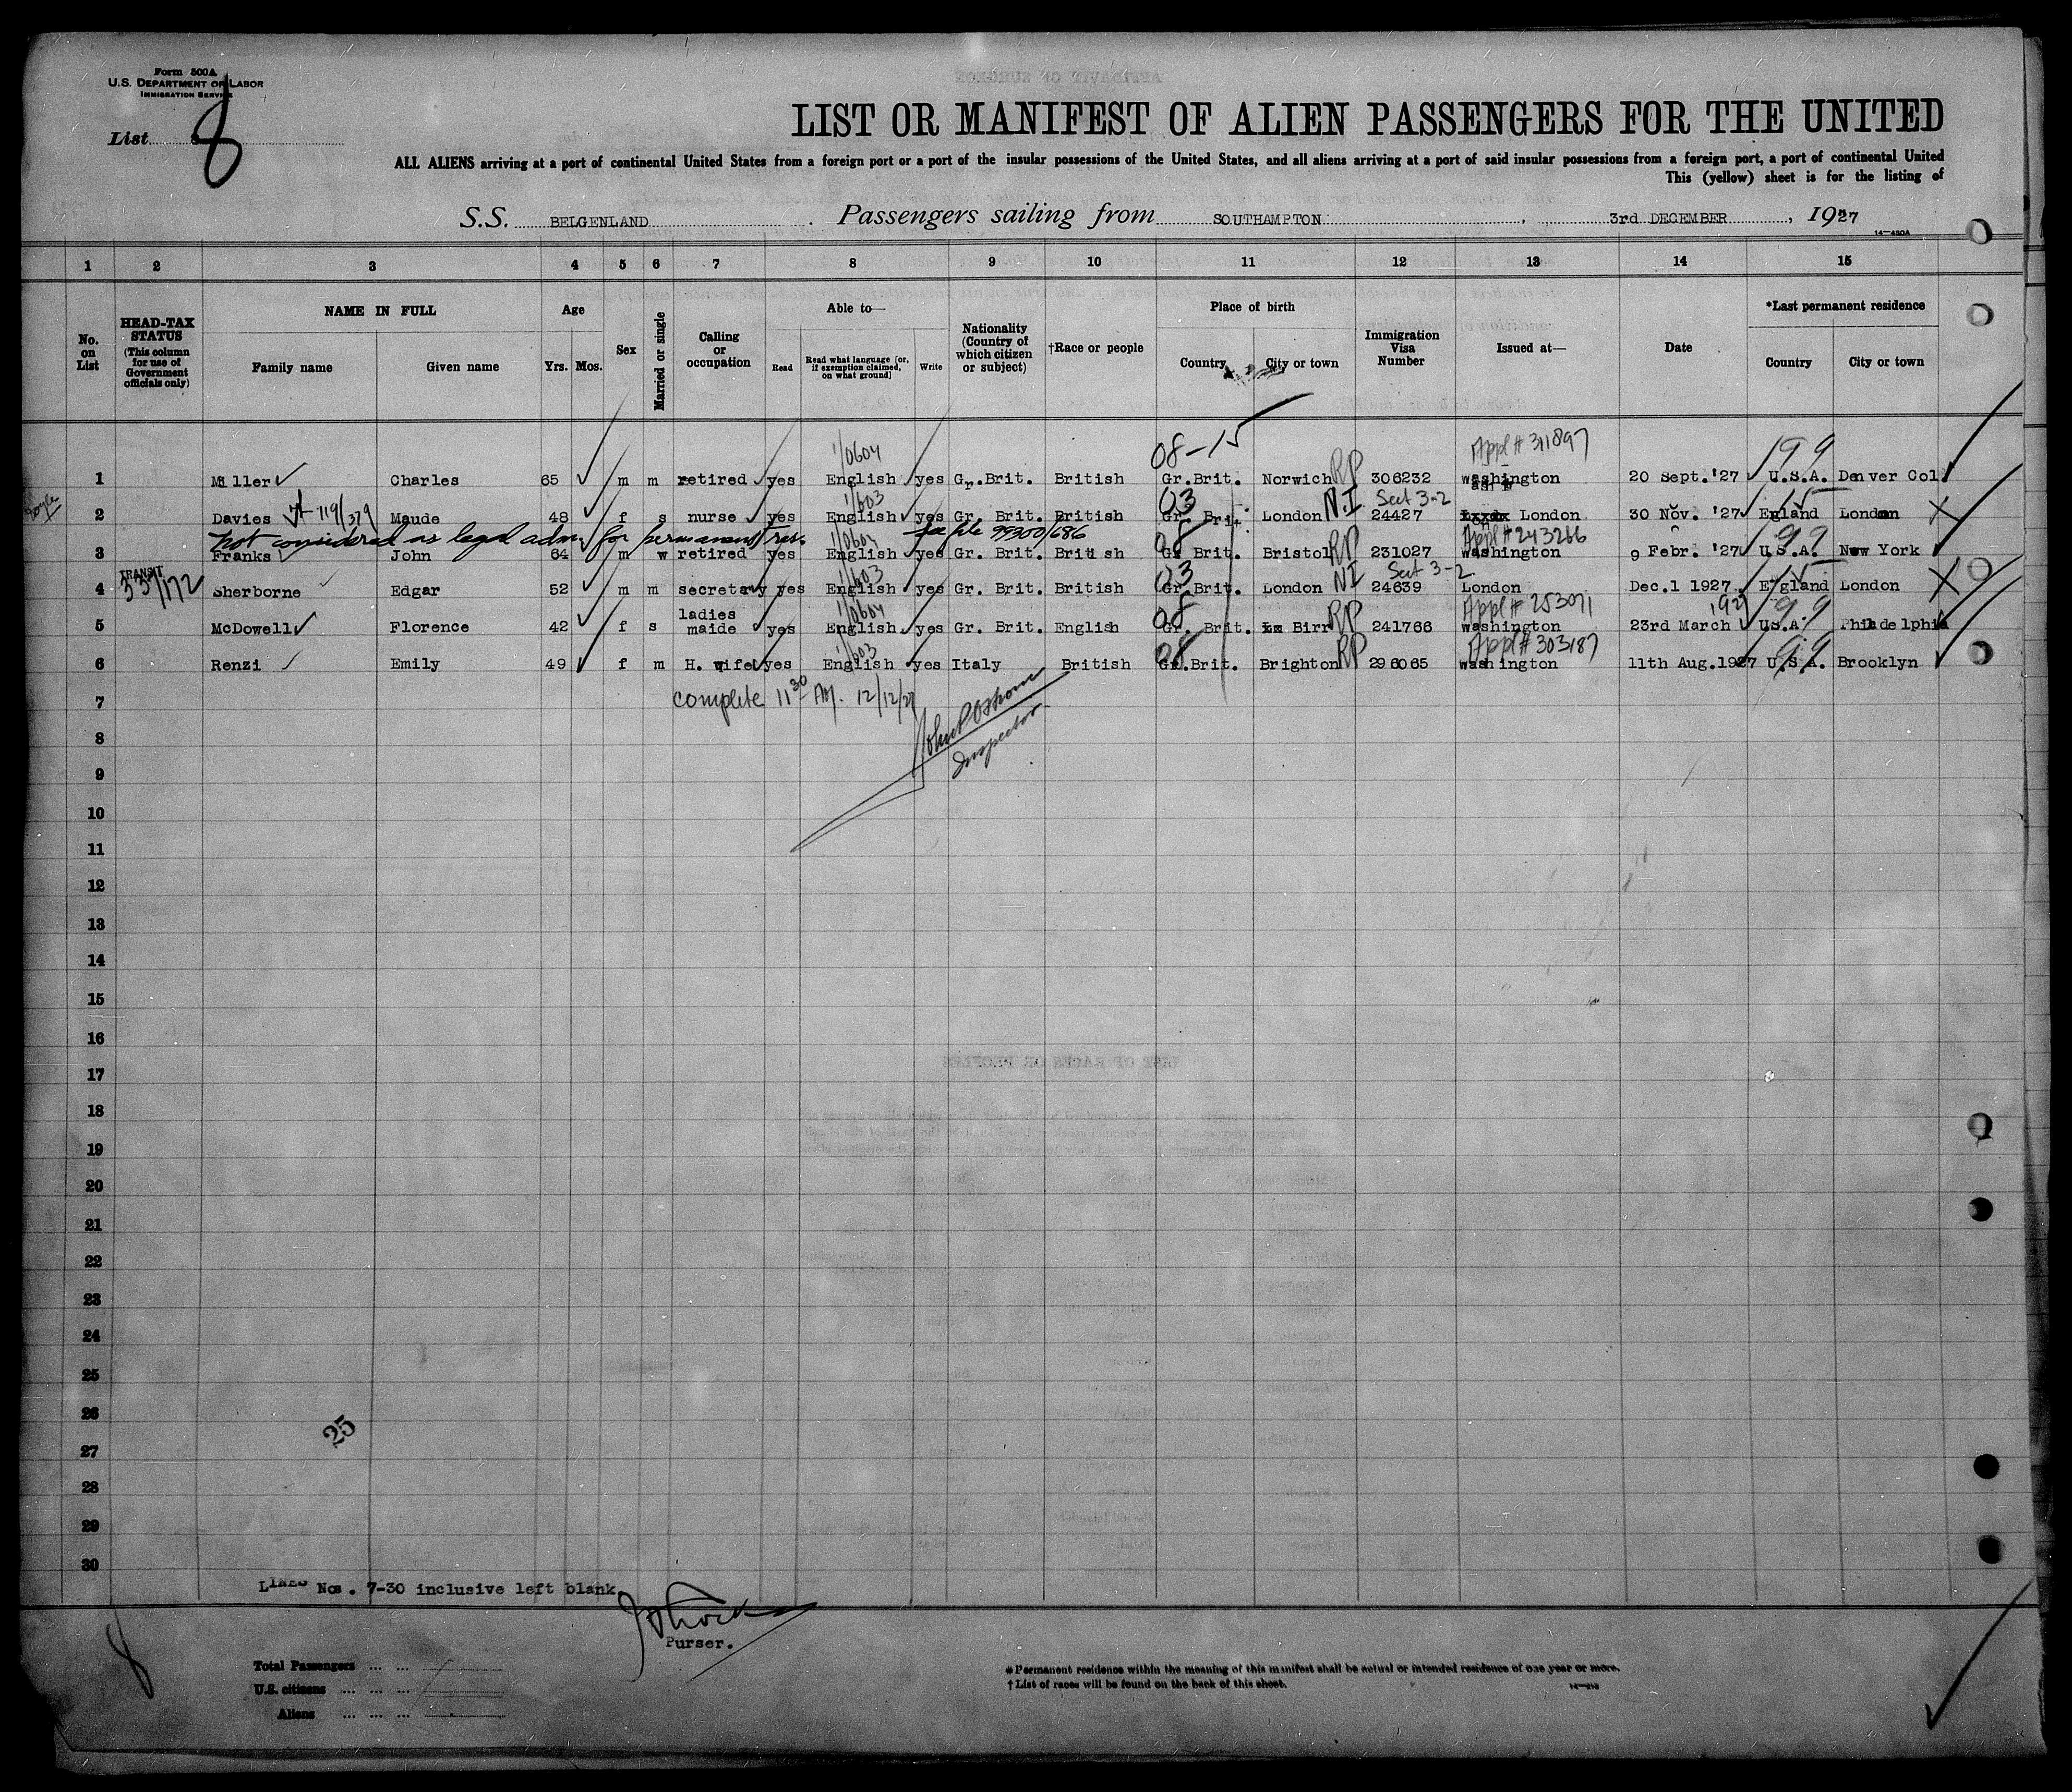 Form 500A
U.S. DEPARTMENT OF LABOR
IMMIGRATION SERVICE
List 8
LIST OR MANIFEST OF ALIEN PASSENGERS FOR THE UNITED
ALL ALIENS arriving at a port of continental United States from a foreign port or a port of the insular possessions of the United States, and all aliens arriving at a port of said insular possessions from a foreign port, a port of continental United
This (yellow) sheet is for the listing of
S.S. BELGENLAND. Passengers sailing from SOUTHAMPTON, 3rd DECEMBER, 1927
14-430A
1 2 3 4 5 6 7 8 9 10 11 12 13 14 15
No. on List
HEAD-TAX STATUS (This column for use of Government officials only)
NAME IN FULL
Family name Given name
Age
Yrs. Mos.
Sex
Married or single
Calling or occupation
Able to—
Read Read what language (or, if exemption claimed, on what ground) Write
Nationality (Country of which citizen or subject)
†Race or people
Place of birth
Country City or town
Immigration Visa Number
Issued at—
Date
*Last permanent residence
Country City or town
1/0604 08-15 Appl # 311897 99
1 Miller Charles 65 m m retired yes English yes Gr.Brit. British Gr.Brit. Norwich RP 306232 washington 20 Sept.'27 U.S.A. Denver Col
1/603 03 Sect 3-2
2 Davies 119/379 Maude 48 f s nurse yes English yes Gr. Brit. British Gr. Brit. London N.I 24427 London 30 Nov. '27 England London
not considered as legal adm. for permanent res. 1/0604 file 99300/686 08 Appl # 243266 99
3 Franks John 64 m w retired yes English yes Gr. Brit. British Gr. Brit. Bristol RP 231027 washington 9 Febr. '27 U.S.A. New York
TRANSIT 1/603 03 Sect 3-2
4 Sherborne Edgar 52 m m secretary yes English yes Gr. Brit. British Gr.Brit. London NI 24639 London Dec.1 1927 England London
ladies 1/0604 08 Appl # 253071 1927 99
5 McDowell Florence 42 f s maide yes English yes Gr. Brit. English Gr. Brit. Birr RP 241766 washington 23rd March U.S.A. Philadelphia
1/603 08 Appl # 303187 99
6 Renzi Emily 49 f m H. wife yes English yes Italy British Gr.Brit. Brighton RP 296065 washington 11th Aug.1927 U.S.A. Brooklyn
7 complete 11 30 AM. 12/12/27
8
9 Inspector
10
11
12
13
14
15
16
17
18
19
20
21
22
23
24
25
26
25
27
28
29
30
Lines Nos. 7-30 inclusive left blank
Purser.
8
Total Passengers ... ...
U.S. citizens ... ... ...
Aliens ... ... ...
* Permanent residence within the meaning of this manifest shall be actual or intended residence of one year or more.
† List of races will be found on the back of this sheet.